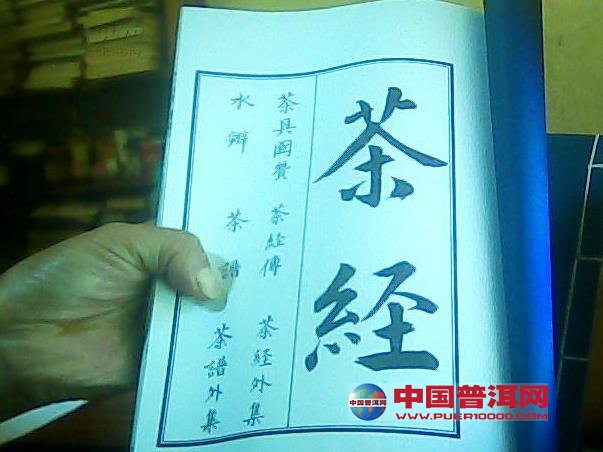 茶経
茶具圖贊 茶経傳 茶経外集
水辨 茶譜 茶譜外集
中国普洱网
中国普洱网
WWW.PUER10000.COM